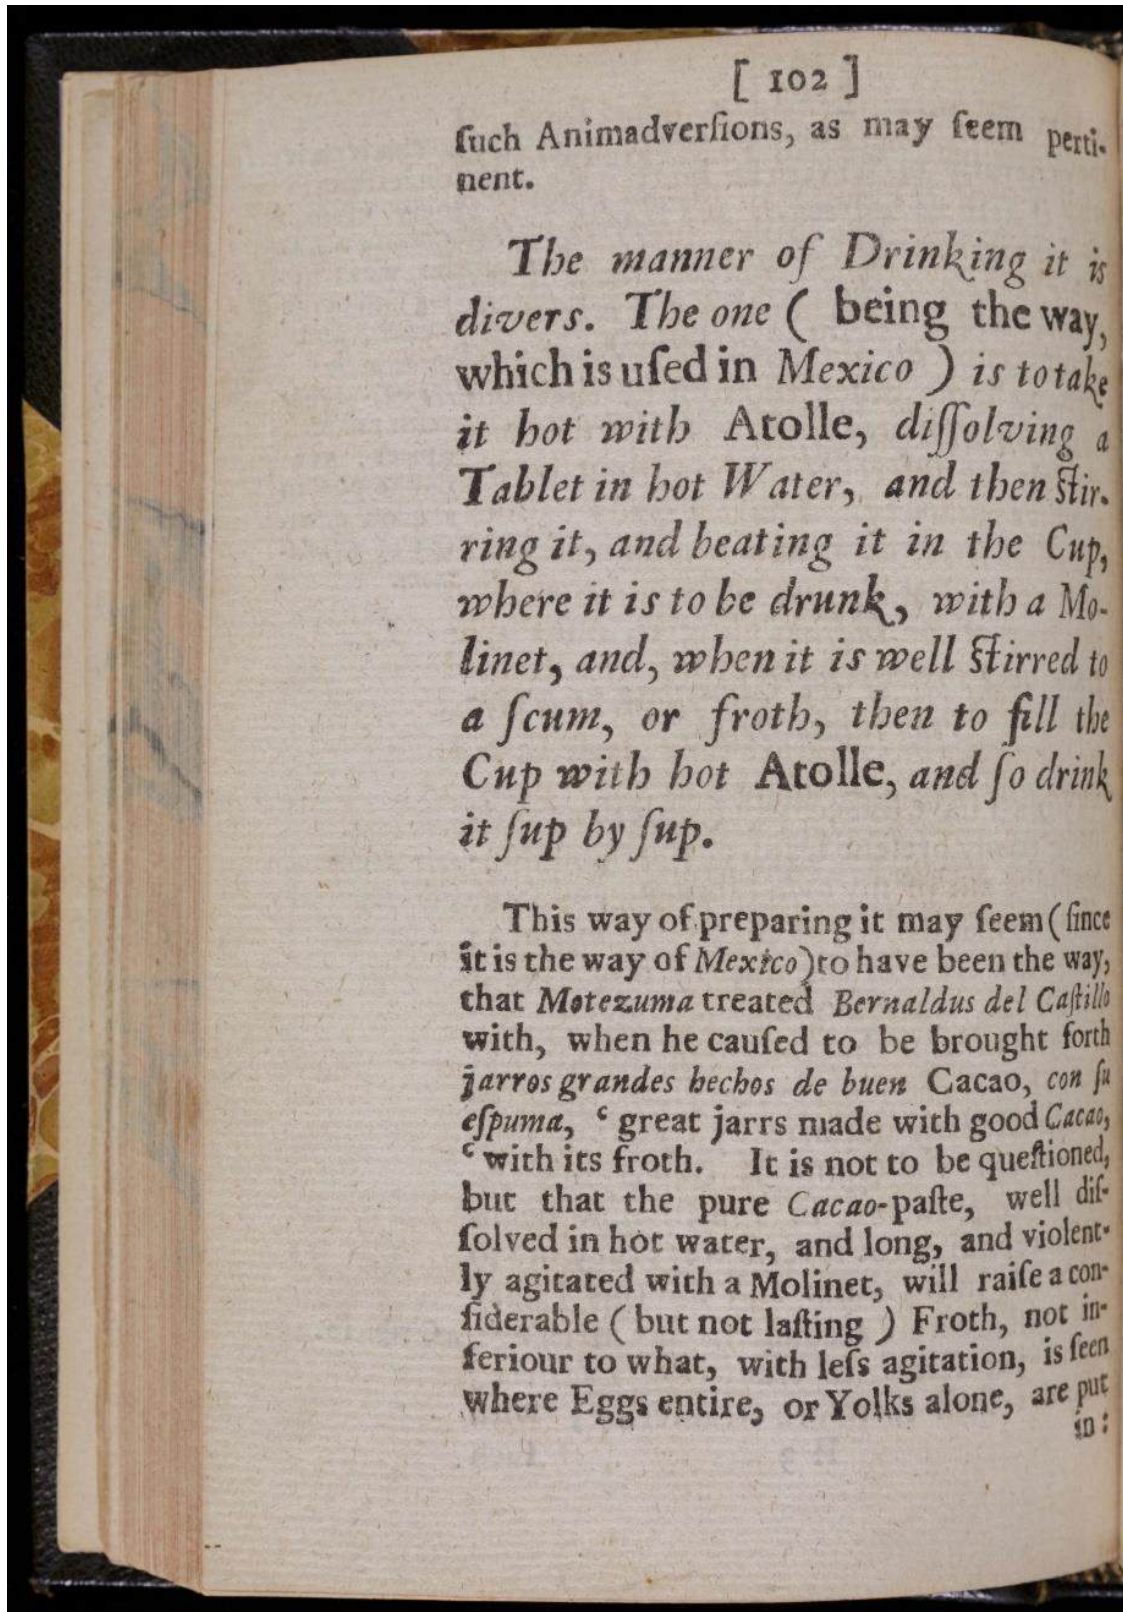 [ 102 ]
ſuch Animadverſions, as may ſeem perti-
nent.
The manner of Drinking it is
divers. The one ( being the way,
which is uſed in Mexico ) is to take
it hot with Atolle, diſſolving a
Tablet in hot Water, and then ſtir-
ring it, and beating it in the Cup,
where it is to be drunk, with a Mo-
linet, and, when it is well ſtirred to
a ſcum, or froth, then to fill the
Cup with hot Atolle, and ſo drink
it ſup by ſup.
This way of preparing it may ſeem (ſince
it is the way of Mexico) to have been the way,
that Motezuma treated Bernaldus del Caſtillo
with, when he cauſed to be brought forth
jarros grandes hechos de buen Cacao, con ſu
eſpuma, ‘ great jarrs made with good Cacao,
‘ with its froth. It is not to be queſtioned,
but that the pure Cacao-paſte, well diſ-
ſolved in hot water, and long, and violent-
ly agitated with a Molinet, will raiſe a con-
ſiderable ( but not laſting ) Froth, not in-
feriour to what, with leſs agitation, is ſeen
where Eggs entire, or Yolks alone, are put
in :